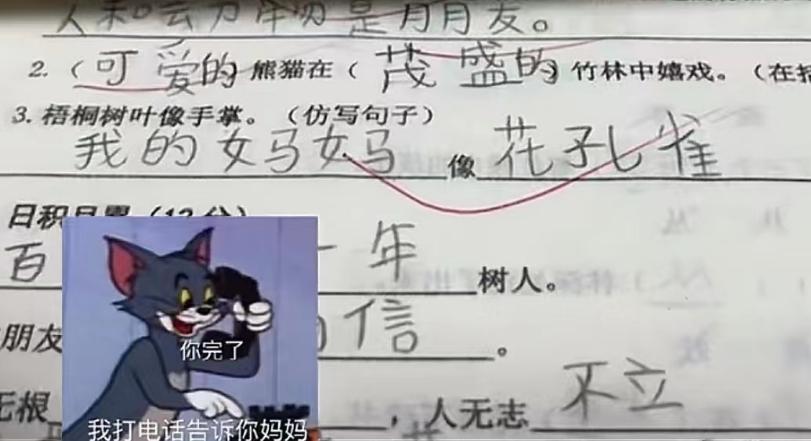 2.（可爱的）熊猫在（茂盛的）竹林中嬉戏。（在括
3. 梧桐树叶像手掌。（仿写句子）
我的妈妈像花孔雀
日积月累（12分）
百年树人。
朋友信。
无根，人无志不立
你完了
我打电话告诉你妈妈